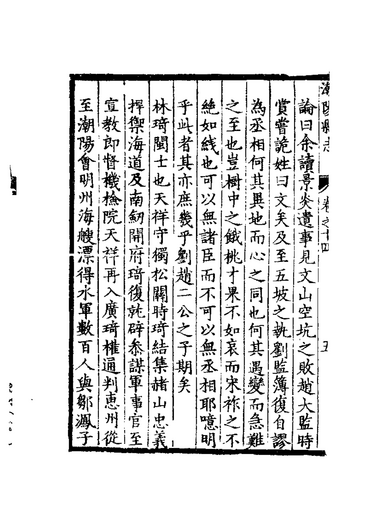 潮陽縣志
卷之十四
五
論曰余讀景炎遺事見文山空坑之敗趙大監時
賞嘗詭姓曰文矣及至五坡之執劉監簿復自謬
為丞相何其異地而心之同也何其遇變而急難
之至也豈樹中之餓桃才果不如哀而宋祚之不
絶如綫也可以無諸臣而不可以無丞相耶噫明
乎此者其亦庶幾乎劉趙二公之子期矣
林琦閩士也天祥守獨松關時琦結集諸山忠義
捍禦海道及南劒開府琦復就辟叅謀軍事官至
宣教郎督機檢院天祥再入廣琦權通判惠州從
至潮陽會明州海艘漂得水軍數百人與鄒㵯子